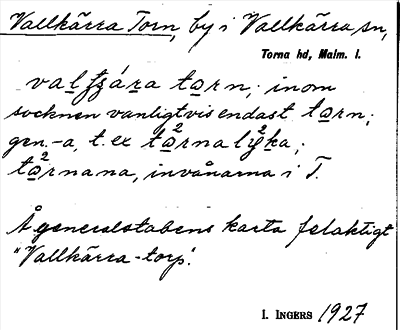 Vallkärra Torn, by i Vallkärra sn,
Torna hd, Malm. l.
torn; inom
socknen vanligtvis endast torn;
gen. -a, t. ex
invånarna i T.
Å generalstabens karta felaktigt
"Vallkärra-torp".
I. INGERS 1927